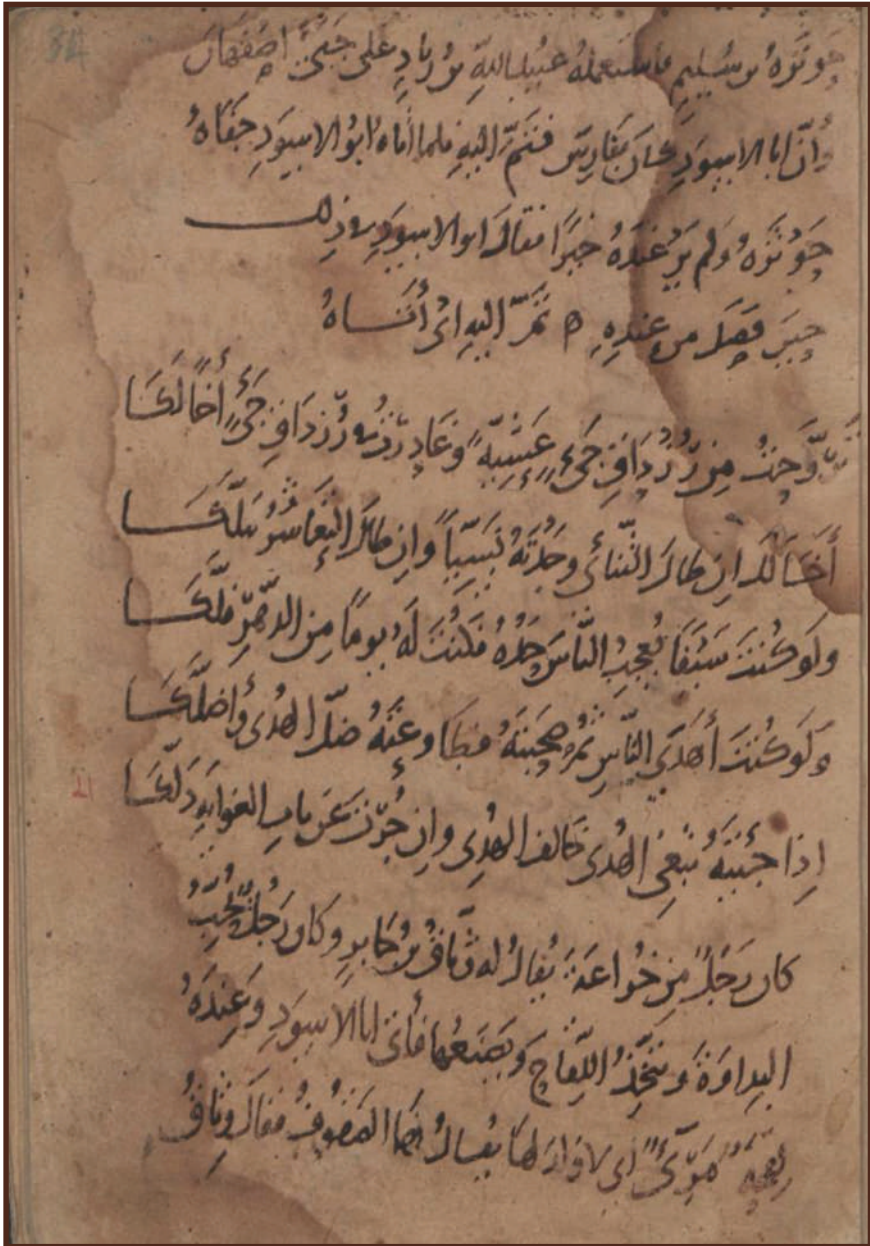 حوثرة بن سليم فاستعمله عبيد الله بن زياد على جَيّ أصفهان
وأنّ ابا الاسودِ كان بفارس فتنمّر اليه فلما أتاه ابو الاسود جفاهُ
حَوْثَرَةُ ولم يَرَ عندَهُ خيرًا فقال ابو الاسودِ في ذلك
حِينَ فَصَلَ من عنده تَنَمَّرَ اليه ائ أتاهُ
تَرَوَّحتُ مِن رُزْدَاقِ جَيٍّ عَشِيَّةً وغَادَرْتُ في رُزْدَاقِ جَيٍّ أخًا لَكَا
أخًا لك ان طال التَّنائي وَجَدْتَهُ نَسِيّاً وان طال التَّعاشُرُ مَلَّكَا
ولو كُنْتَ سَيْفًا يُعْجِبُ النَّاسَ حَدُّهُ فكُنْتَ لَهُ يومًا مِن الدَّهْرِ فَلَّكَا
ولَو كُنْتَ أَهْدَى النَّاسِ ثُمَّ صَحِبْتَهُ فطاوعتَهُ ضلَّ الهُدَى وأَضلَّكَا
اِذَا جِئْتَهُ تَبْغِي الهُدَى خَالف الهُدى وان جُرْتَ عَن باب الغوايةِ دَلَّكَا
كان رَجُلٌ مِن خُزاعَةَ يُقالُ له وثاقُ بن جابرٍ وكان رَجُلًا يُحِبُّ
البِداوَةَ ويتَّخِذُ اللِّقَاحَ ويَصْنَعُها فأتى ابا الاسودِ وعِندَهُ
لِقْحَةٌ يقال لها الصَّفُوفُ فقال وثاقُ